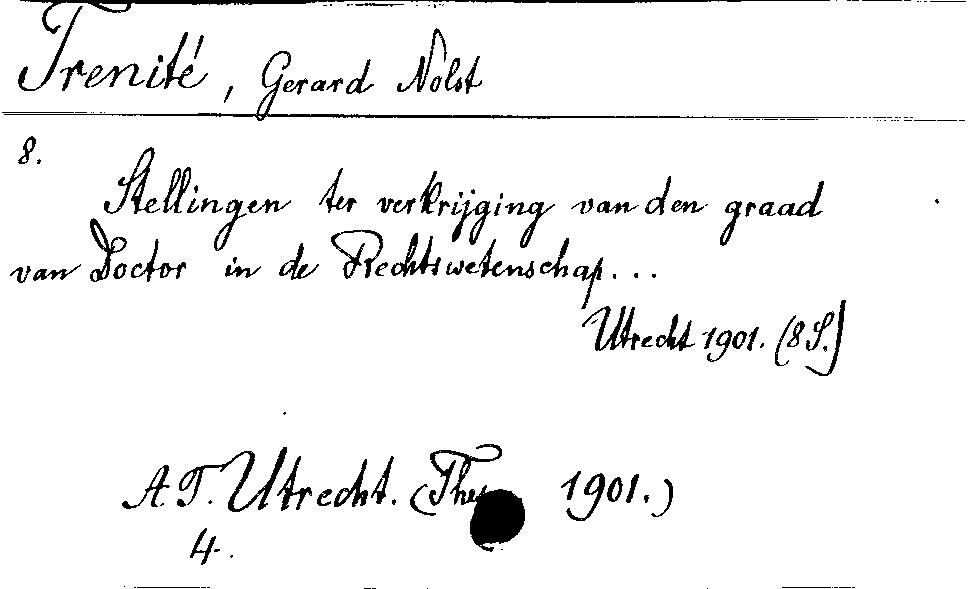 Trenité, Gerard Nolst
8.
Stellingen ter verkrijging van den graad
van Doctor in de Rechtswetenschap...
Utrecht 1901. (8 S.)
A. T. Utrecht. (Thes 1901.)
4.